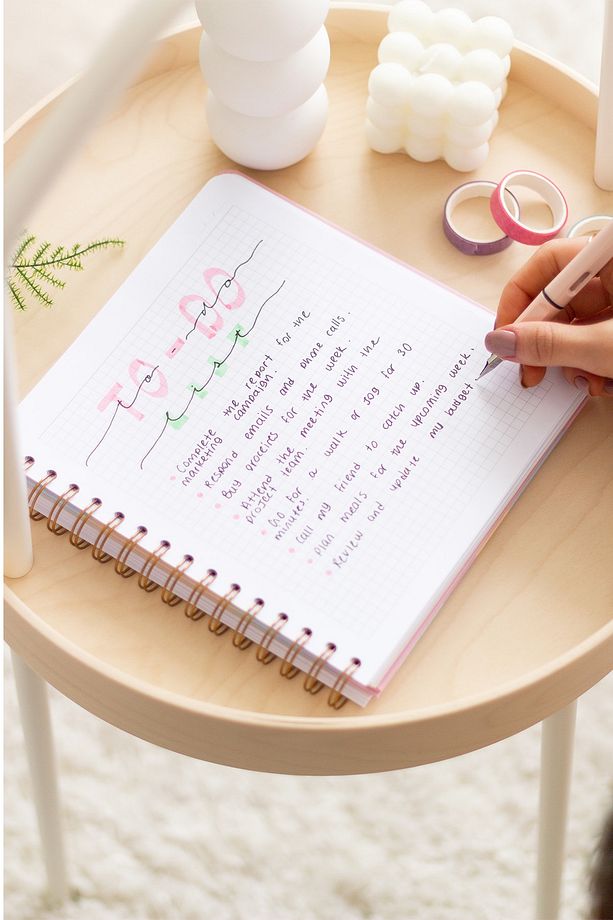 TO-DO
to-do
list
Complete the report for the
marketing campaign.
Respond emails and phone calls.
Buy groceries for the week.
Attend the meeting with the
project team.
Go for a walk or jog for 30
minutes.
Call my friend to catch up.
Plan meals for the upcoming week.
Review and update my budget